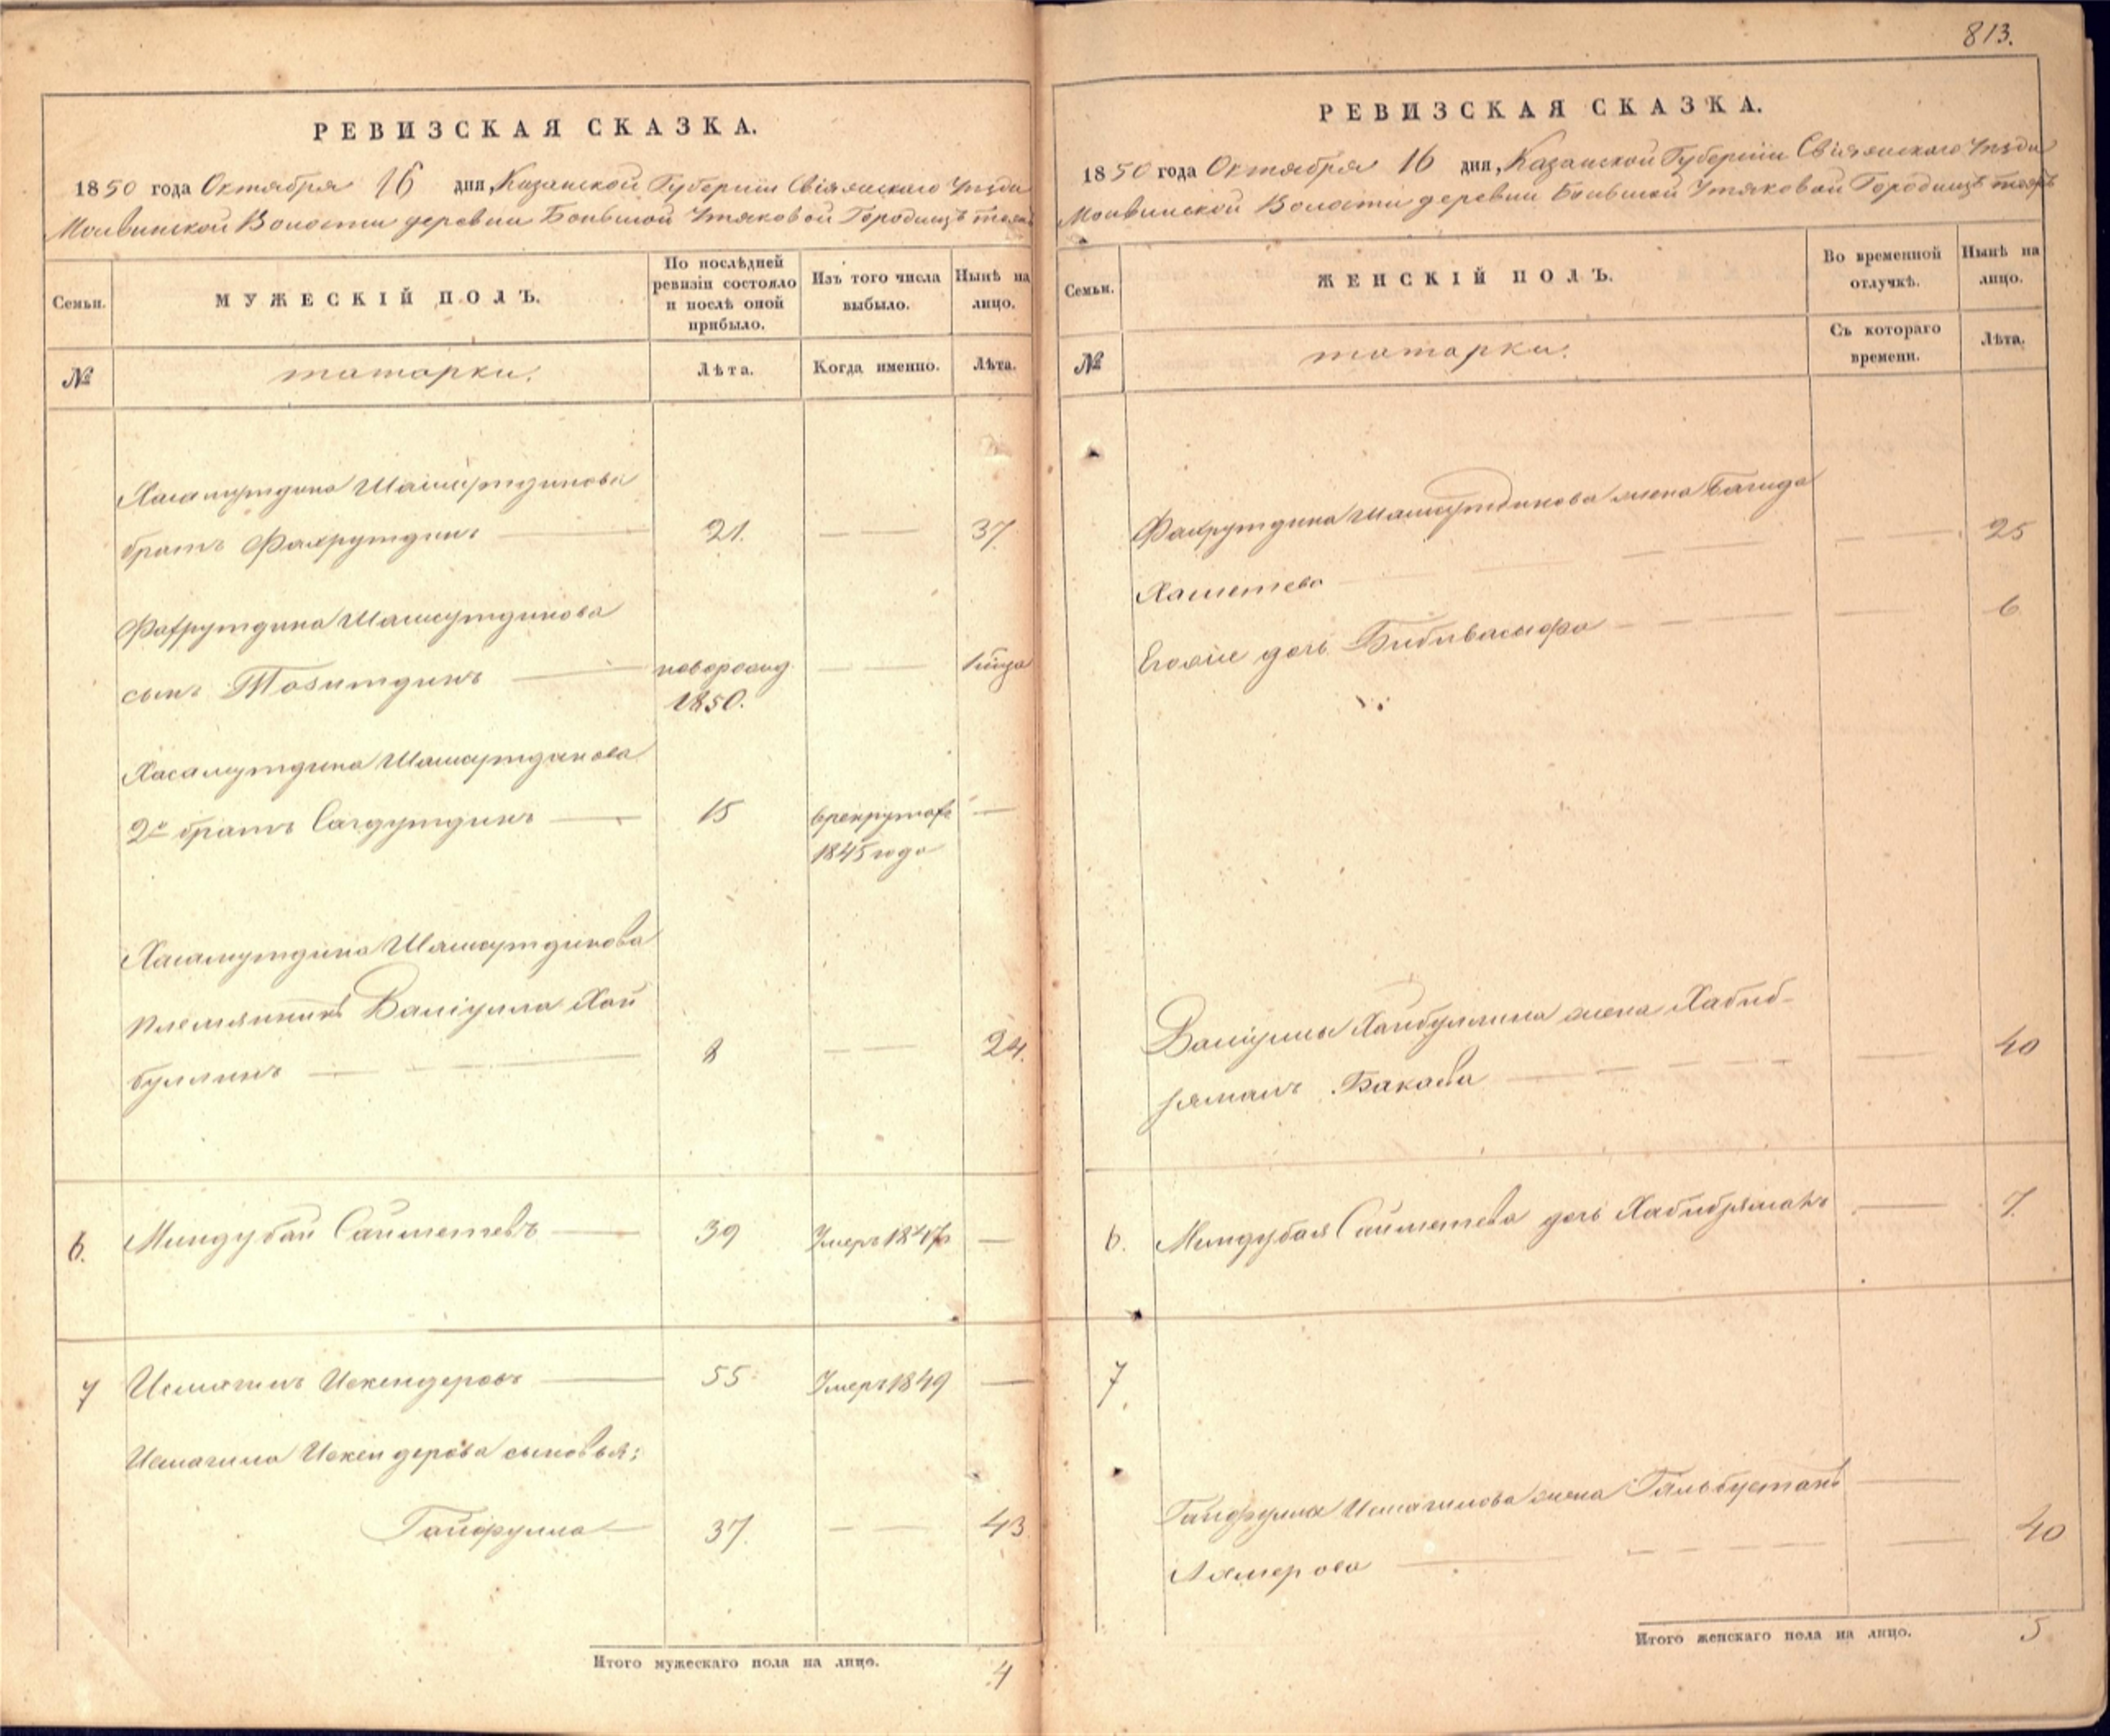 813.
РЕВИЗСКАЯ СКАЗКА.
1850 года Октября 16 дня, Казанской Губерніи Свіяжскаго Уѣзда
Молвинской Волости деревни Большой Утяковой Городищъ тожъ
Семьи.
МУЖЕСКІЙ ПОЛЪ.
По послѣдней ревизіи состояло и послѣ оной прибыло.
Изъ того числа выбыло.
Нынѣ на лицо.
№
татарки.
Лѣта.
Когда именно.
Лѣта.
Хасамутдина Шамсутдинова
братъ Фахрутдинъ 21. 37
Фахрутдина Шамсутдинова
сынъ новорожд. 1850.
Хасамутдина Шамсутдинова
2й братъ Сагдутдинъ 15 в рекрутахъ 1845 года
Хасамутдина Шамсутдинова
племянникъ Валіулла Хай
буллинъ 8 24.
6. Миндубай Сайметевъ 39 Умеръ 1847
7 Исмагилъ Искендеровъ 55 Умеръ 1849
Исмагила Искендерова сыновья:
Гайфулла 37. 43
Итого мужескаго пола на лицо. 4
РЕВИЗСКАЯ СКАЗКА.
1850 года Октября 16 дня, Казанской Губерніи Свіяжскаго Уѣзда
Молвинской Волости деревни Большой Утяковой Городищъ тожъ
Семьи.
ЖЕНСКІЙ ПОЛЪ.
Во временной отлучкѣ.
Нынѣ на лицо.
№
татарки.
Съ котораго времени.
Лѣта.
Фахрутдина Шамсутдинова жена Багида
Хаметева 25
Егожіе дочь Бибивасыфа 6
Валіуллы Хайбуллина жена Хабиб-
рямалъ Бакаева 40
6. Миндубая Сайметева дочь 7.
7.
Гайфуллы Исмагилова жена Гюльбустанъ
40
Итого женскаго пола на лицо. 5